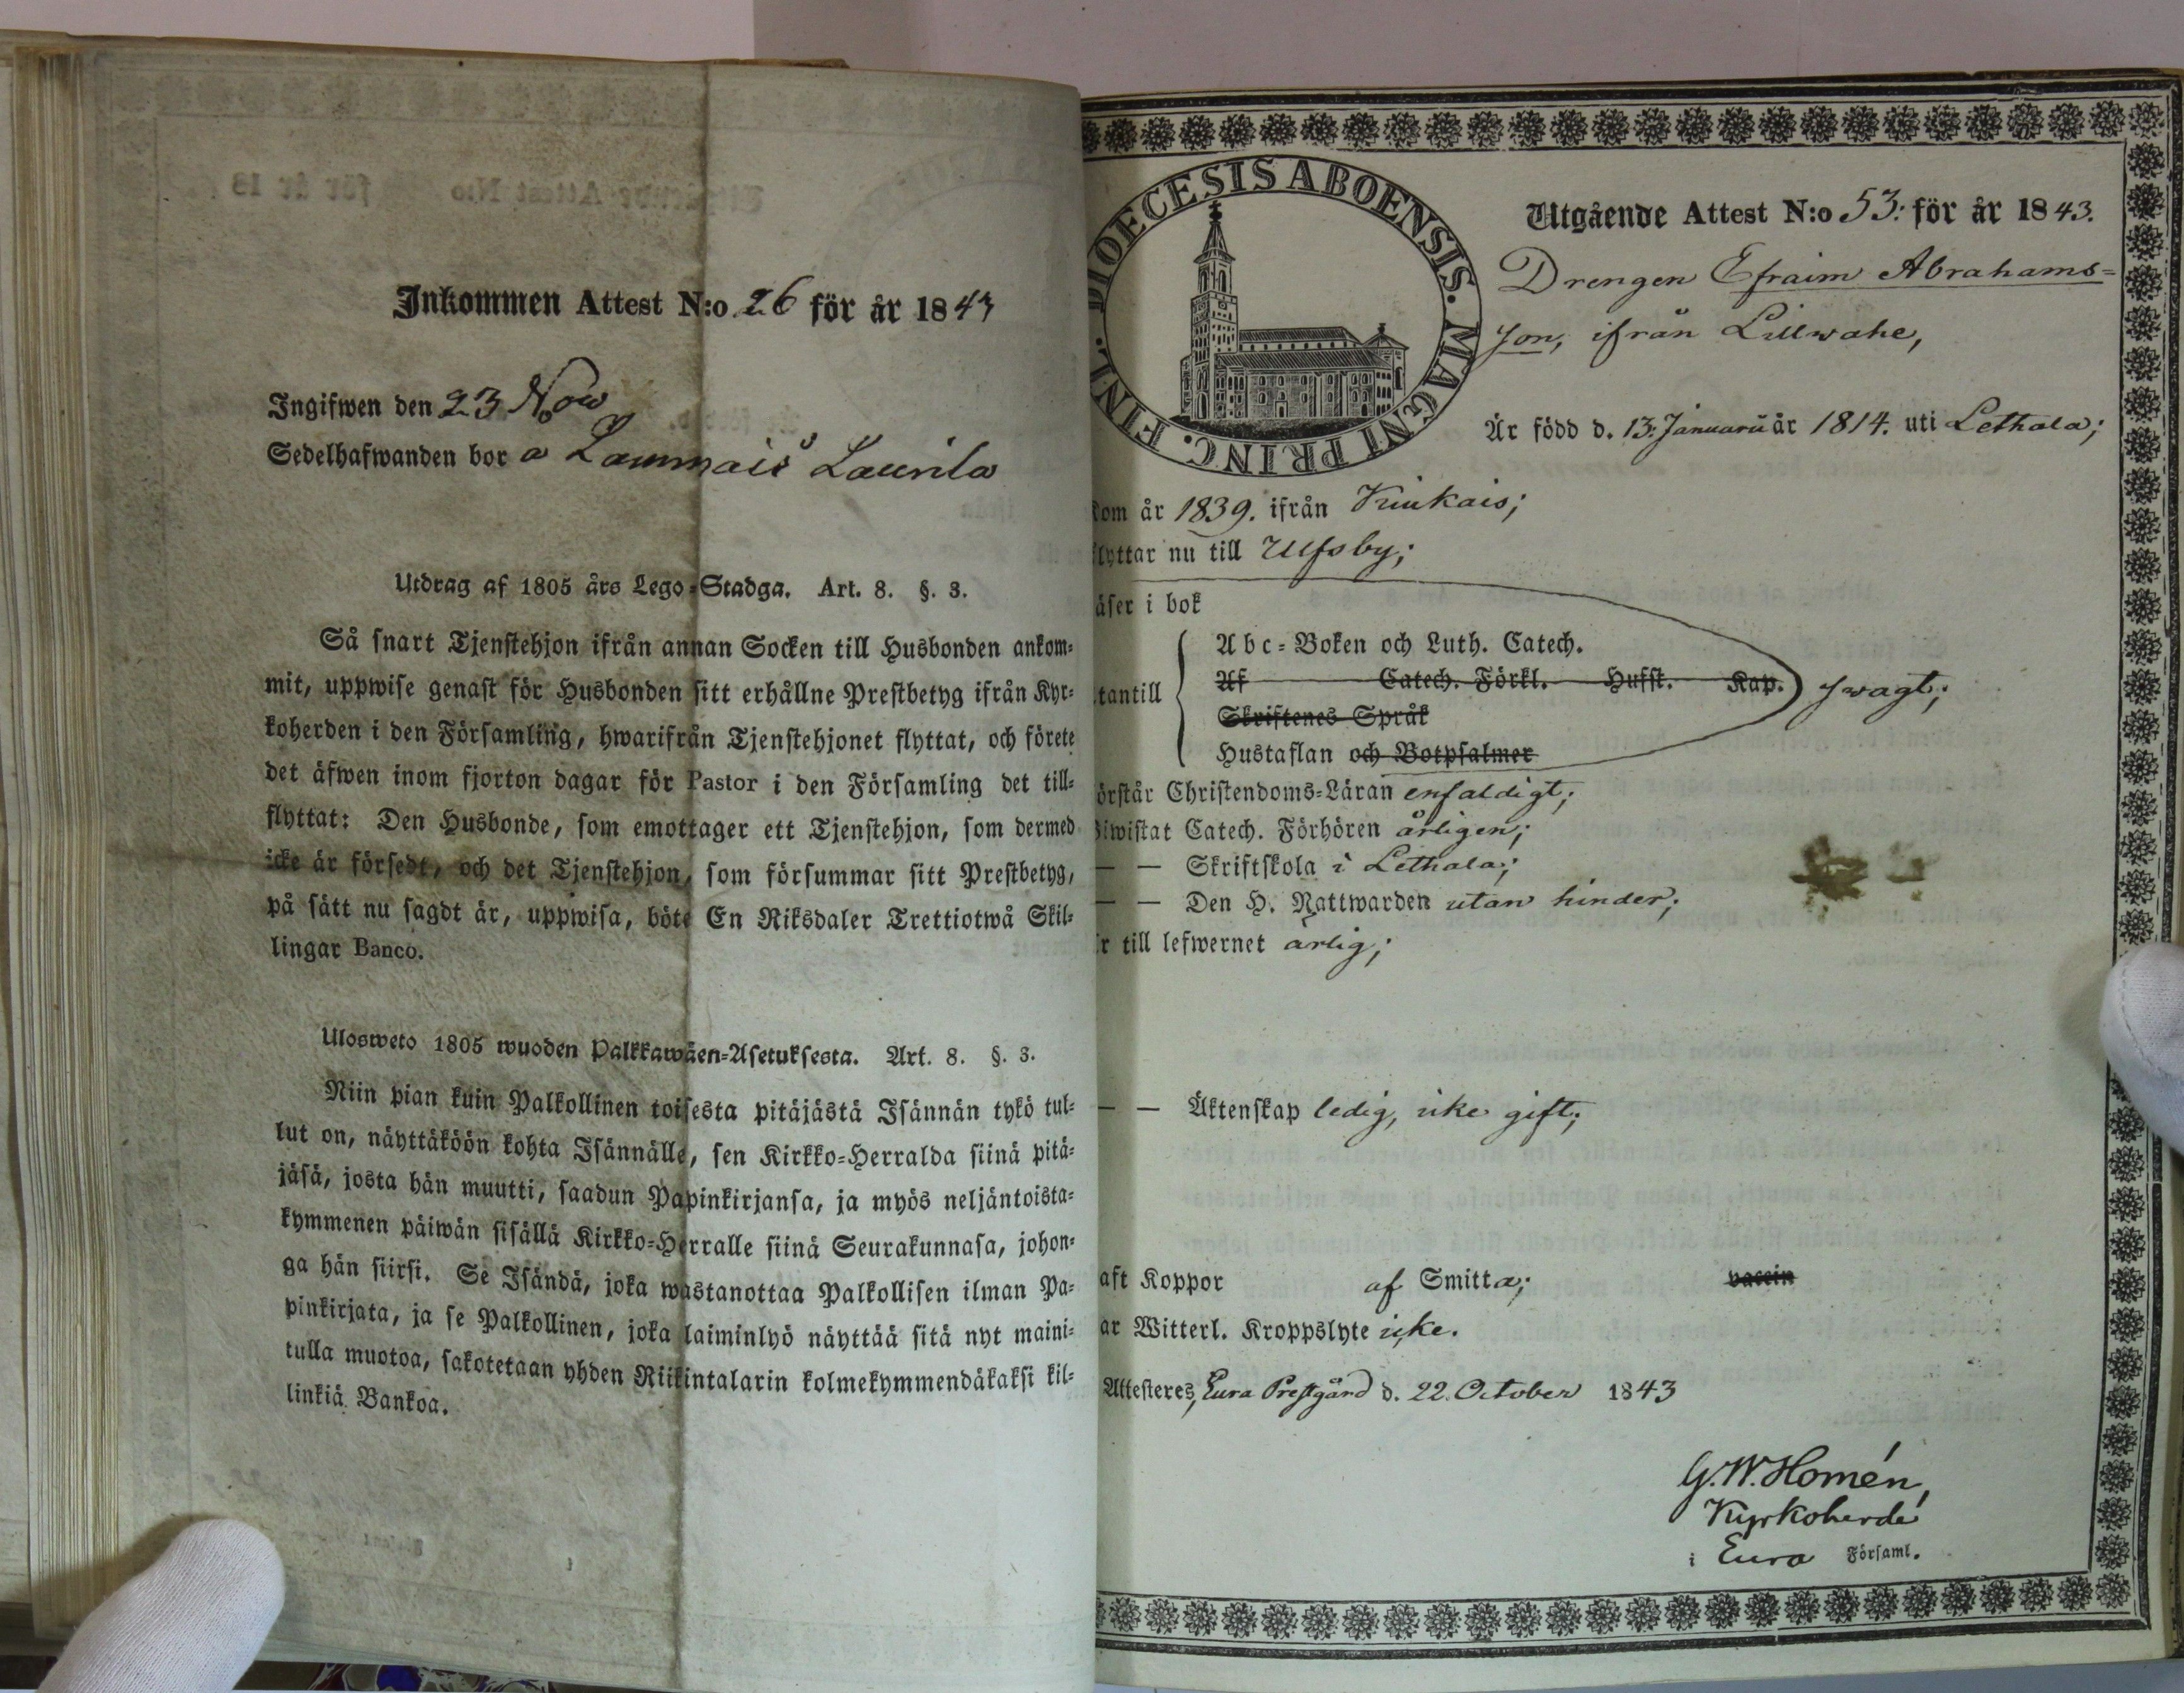 Inkommen Attest N:o 26 för år 1843
Ingifwen den 23 Nov
Sedelhafwanden bor a Lammais Laurila
Utdrag af 1805 års Lego-Stadga. Art. 8. §. 3.
Så snart Tjenstehjon ifrån annan Socken till Husbonden ankom-
mit, uppwise genast för Husbonden sitt erhållne Prestbetyg ifrån Kyr-
koherden i den Församling, hwarifrån Tjenstehjonet flyttat, och förete
det äfwen inom fjorton dagar för Pastor i den Församling det till-
flyttat: Den Husbonde, som emottager ett Tjenstehjon, som dermed
icke är försedt, och det Tjenstehjon, som försummar sitt Prestbetyg,
på sätt nu sagdt är, uppwisa, böte En Riksdaler Trettiotwå Skil-
lingar Banco.
Ulosweto 1805 wuoden Palkkawäen-Asetuksesta. Art. 8. §. 3.
Niin pian kuin Palkollinen toisesta pitäjästä Isännän tykö tul-
lut on, näyttäköön kohta Isännälle, sen Kirkko-Herralda siinä pitä-
jäsä, josta hän muutti, saadun Papinkirjansa, ja myös neljäntoista-
kymmenen päiwän sisällä Kirkko-Herralle siinä Seurakunnasa, johon-
ga hän siirsi. Se Isändä, joka wastanottaa Palkollisen ilman Pa-
pinkirjata, ja se Palkollinen, joka laiminlyö näyttää sitä nyt maini-
tulla muotoa, sakotetaan yhden Riikintalarin kolmekymmendäkaksi kil-
linkiä Bankoa.
DIOECESIS ABOENSIS. MAGNI PRINC. FINL.
Utgående Attest N:o 53: för år 1843.
Drengen Efraim Abrahams=
son, ifrån Lillwahe,
Är född d. 13: Januarii år 1814. uti Lethala;
kom år 1839. ifrån Kiukais;
flyttar nu till Ulfsby;
äser i bok
Abc-Boken och Luth. Catech.
tantill Af Catech. Förkl. Hufst. Kap. swagt;
Skriftenes Språk
Hustaflan och Botpsalmer
örstår Christendoms-Läran enfaldigt;
Biwistat Catech. Förhören årligen;
— — Skriftskola i Lethala;
— — Den H. Nattwarden utan hinder;
r till lefwernet ärlig;
— — Äktenskap ledig, icke gift;
aft Koppor af Smitta; vaccin
ar Witterl. Kroppslyte icke.
Attesteres, Eura Prestgård d. 22. October 1843
G. W. Homén,
Kyrkoherde
i Eura Församl.